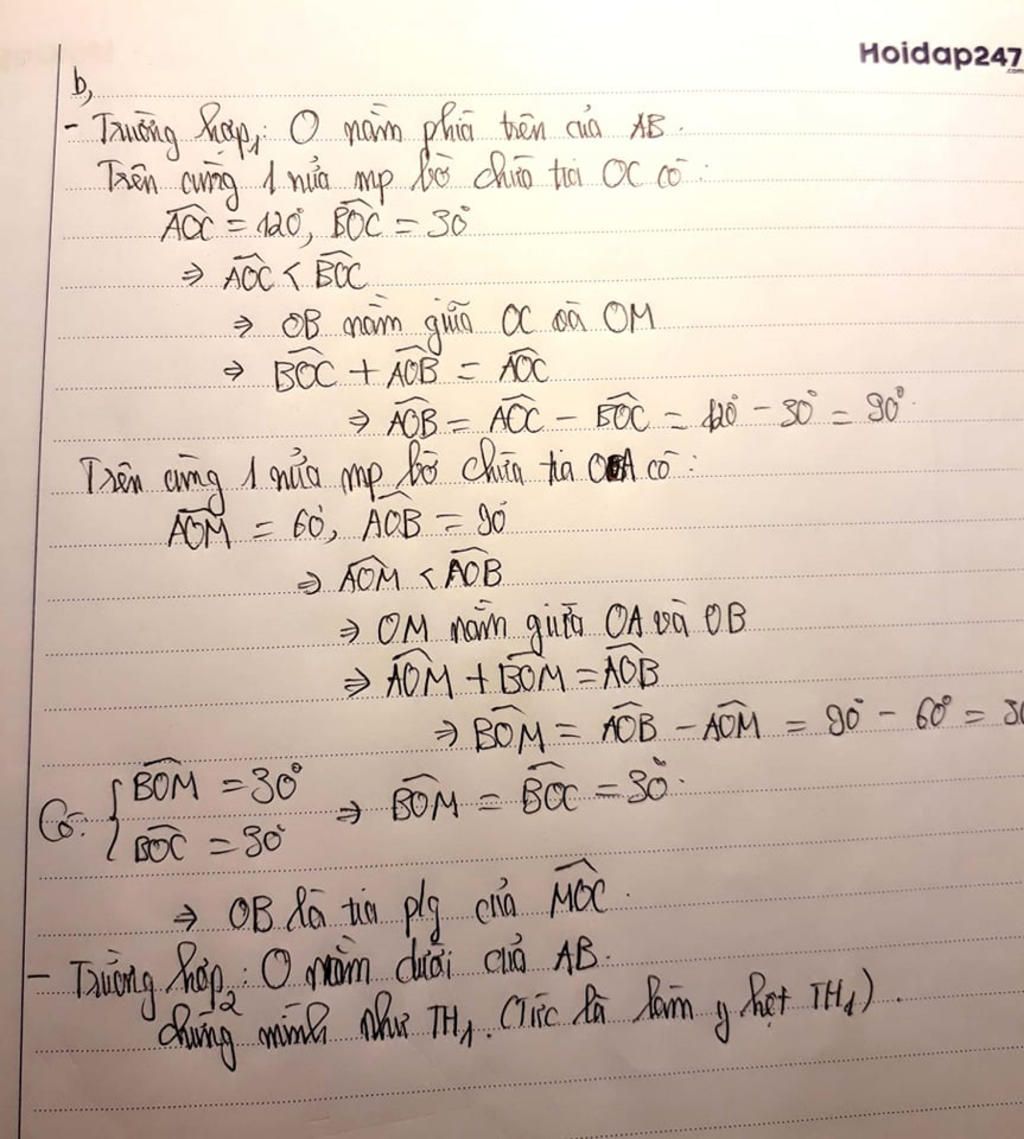 Hoidap247
.com
b,
- Trường hợp1: O nằm phía trên của AB.
Trên cùng 1 nửa mp bờ chứa tia OC có:
AOC = 120°, BOC = 30°
⇒ AOC < BOC
⇒ OB nằm giữa OC và OM
⇒ BOC + AOB = AOC
⇒ AOB = AOC - BOC = 120° - 30° = 90°.
Trên cùng 1 nửa mp bờ chứa tia OA có:
AOM = 60°, AOB = 90°
⇒ AOM < AOB
⇒ OM nằm giữa OA và OB
⇒ AOM + BOM = AOB
⇒ BOM = AOB - AOM = 90° - 60° = 30
Có: { BOM = 30°
BOC = 30°
⇒ BOM = BOC = 30°.
⇒ OB là tia plg của MOC.
- Trường hợp2: O nằm dưới của AB.
chứng minh như TH1. (Tức là làm y hệt TH1).